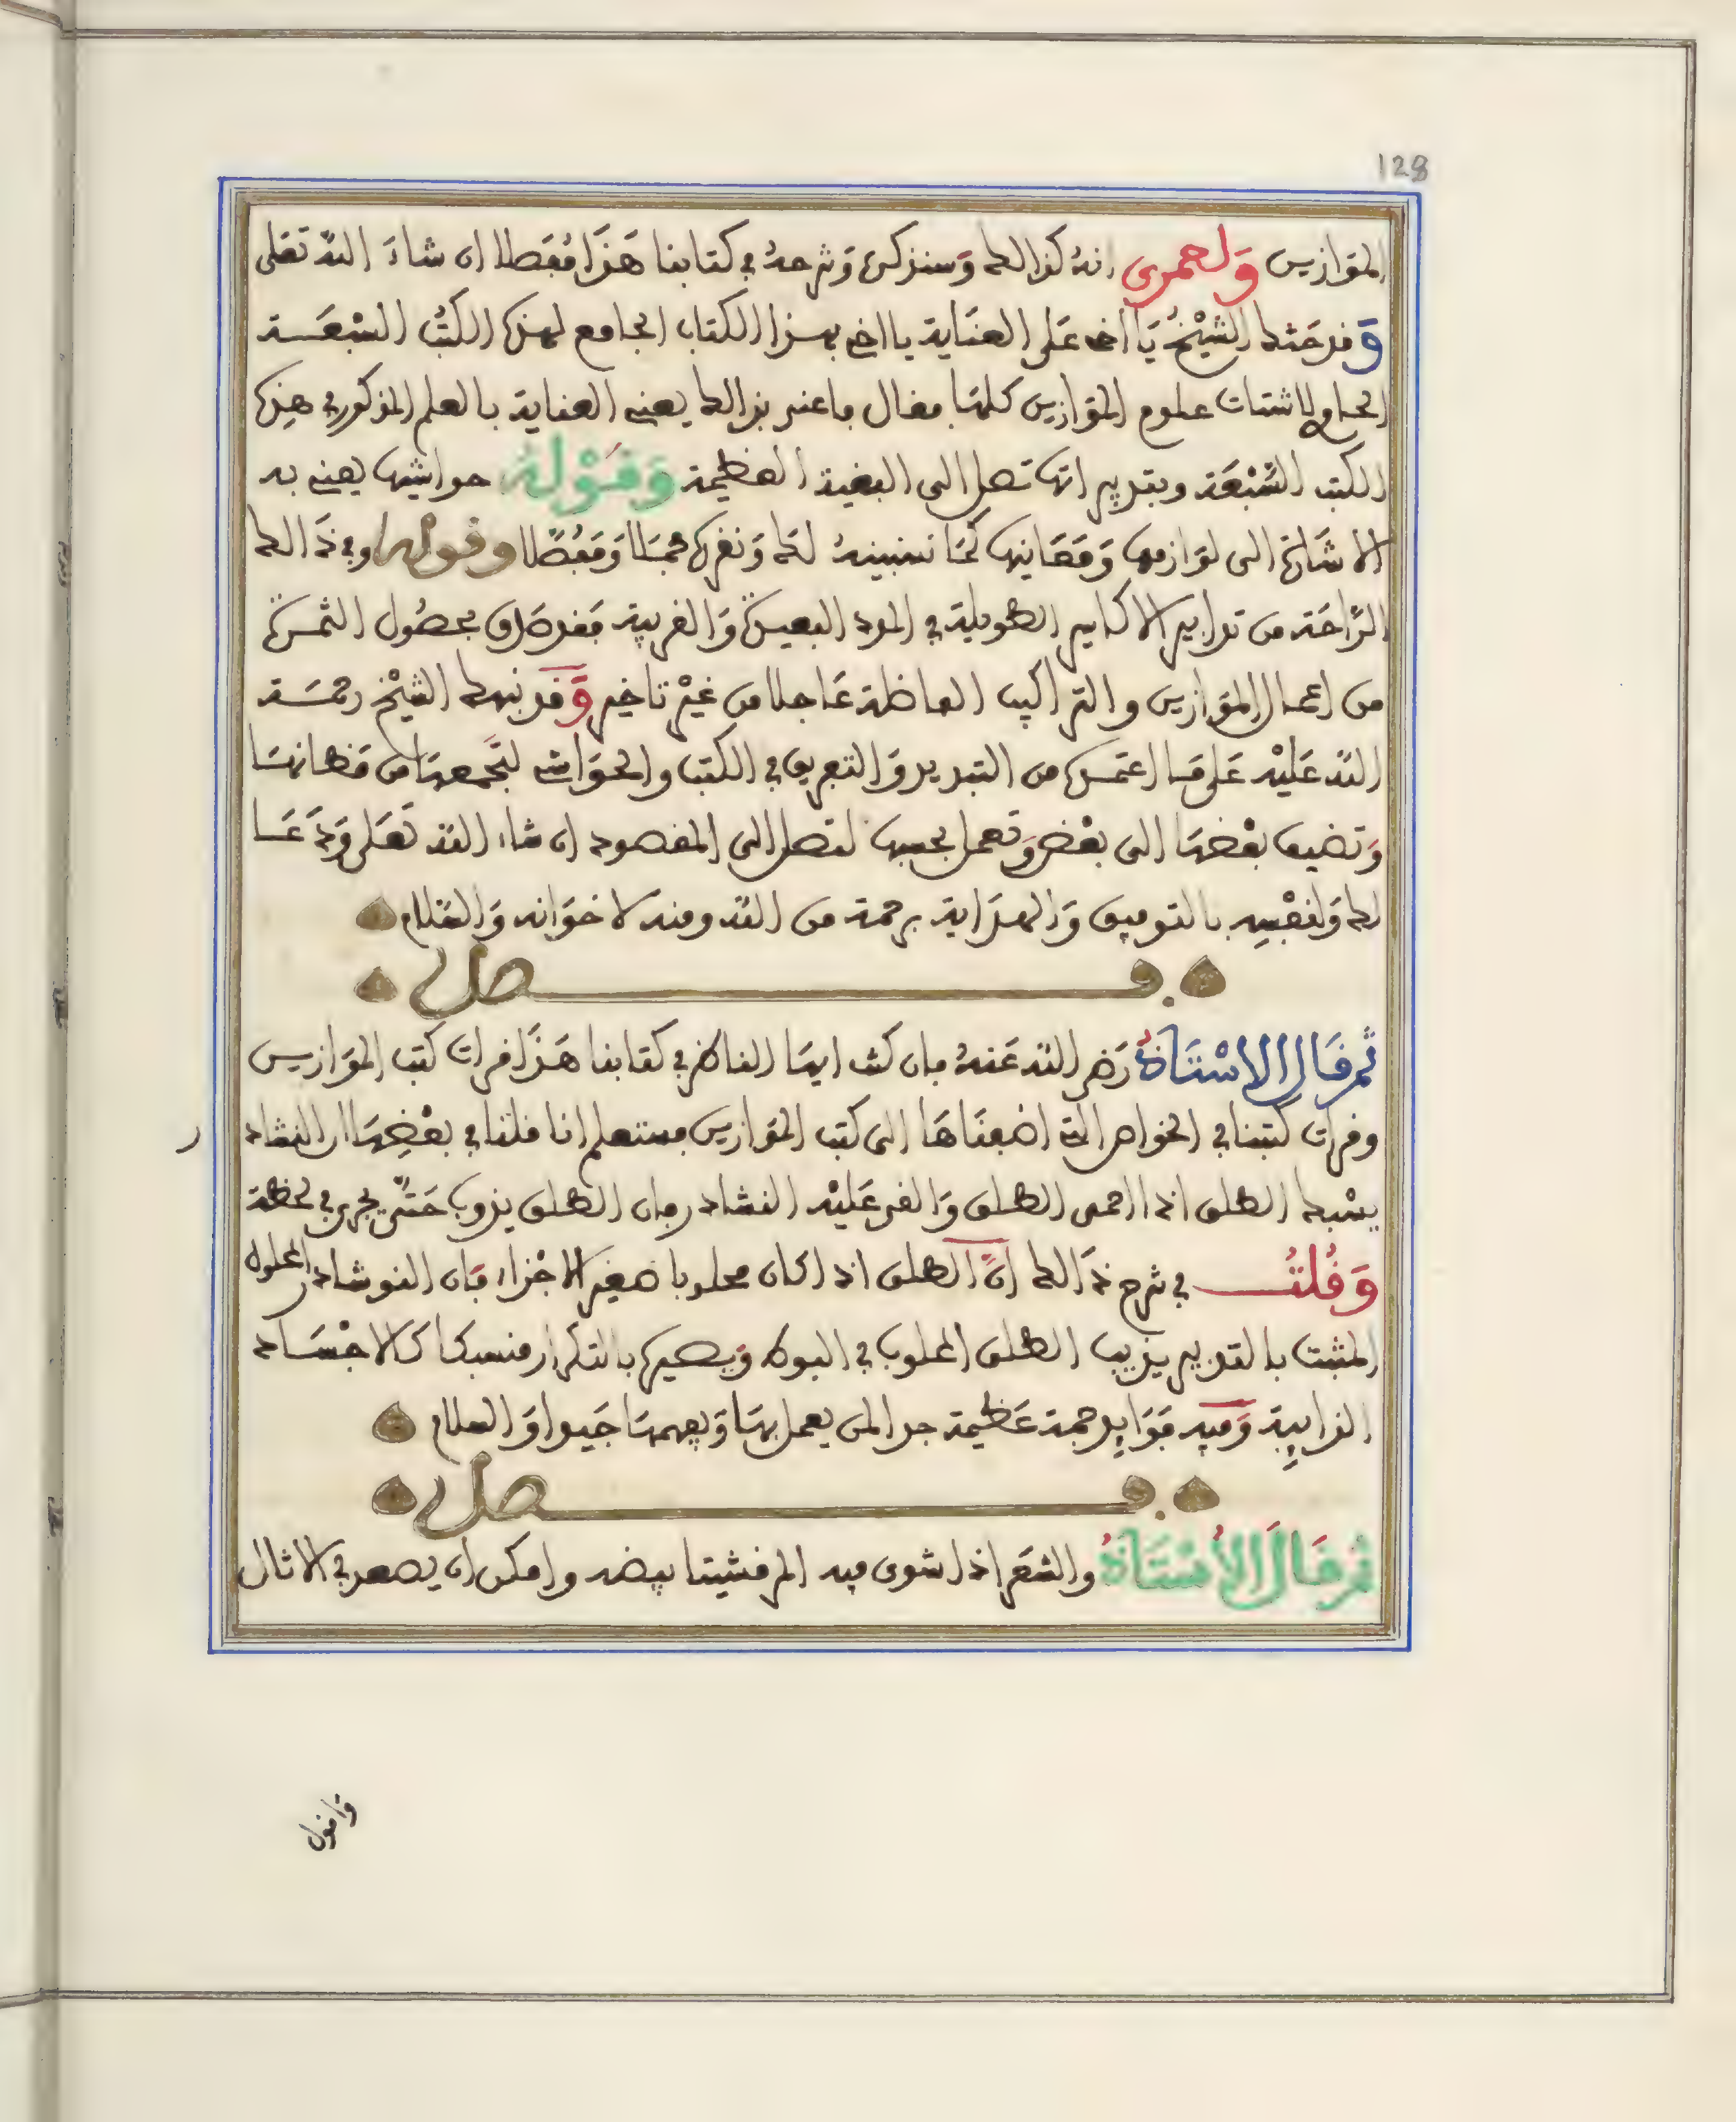 128
الموازين وَلعمرى انهُ كذالك وَسنذكره وَشرحهُ في كتابنا هَذَا مُفَصلا ان شاءَ اللّه تعَلى
وَقد حَثك الشيْخُ يَا اخى عَلى العنَاية يا اخى بهذا الكتاب الجامع لهذه الكتُب السّبْعَــة
الحاوى لاشتات علوم الموَازين كلهَا فقال فاعنى بذالك يعنى العناية بالعلم المذكور في هذه
الكتب السَّبْعَة وبتدبيراتها تصل الى البغية العظيمة وَقَوْلهُ حواشيها يعنى به
الاشَارة الى لوَازمها وَمَعَانيها كمَا نسبينهُ لكَ وَنفرده مجمَلا وَمفَصَّلا وقوله وفي ذَالك
الرَّاحَة من تدابير الاكاسير الطويلة في المدد البعيدَة وَالقريبة فقد صَدق بحصُول الثمَرَة
من اعمال الموَازين والتراكيب الفاضلة عَاجلا من غيْر تاخير وَّقد نبهك الشيْخ رحمَــة
اللّه عَليْه عَلى مَا اعتمَده من التبديد وَالتفريق في الكتب والحوَاشى لتجمعهَا من مَضانهَـا
وَتضيف بعْضهَا الى بعْض وَتعمل بحسبها لتصل الى المقصود ان شاء اللّه تعَلى وَدَعَــا
لك وَلنفْسِه بالتوفيق وَالهدَاية برحمة من اللّه ومنه لاخوَانه وَالسّلام
فــصل
ثم قَال الاسْتَاذُ رَضى اللّه عَنهُ فان كنت ايهَا الناظر في كتابنا هَذَا قرات كتب الموَازين
وقرات كتبنا في الخواص التى اضفنَاهَا الى كتب الموَازين فستعلم انا قلنا في بعْضِهَا ان النشاد
ر
يسْبك الطلق اذا احمى الطلق وَالقى عَليْه النشادر فان الطلق يذوب حَتَّى يجرى في لحظة
وَقُلتُ في شرح ذَالك انَّ الطلق اذا كان محلوبا صغير الاجْزاء فَان النوشادر المحلول
المثبت بالتدبير يذيب الطلق المحلوب في البوط وَيصيره بالتكرار منسبكا كالاجْسَـاد
الذايبِة وَفيه فوَايد جمة عَظيمة جدا لمن يعمل بهَا وَيفهمهَا جَيدا وَالسلام
فــصل
ثم قَالَ الأُسْتَاذُ والشعَر اذا شوى فيه المرقشيتا بيضه وامكن ان يصعد في الاثال
وَاقول